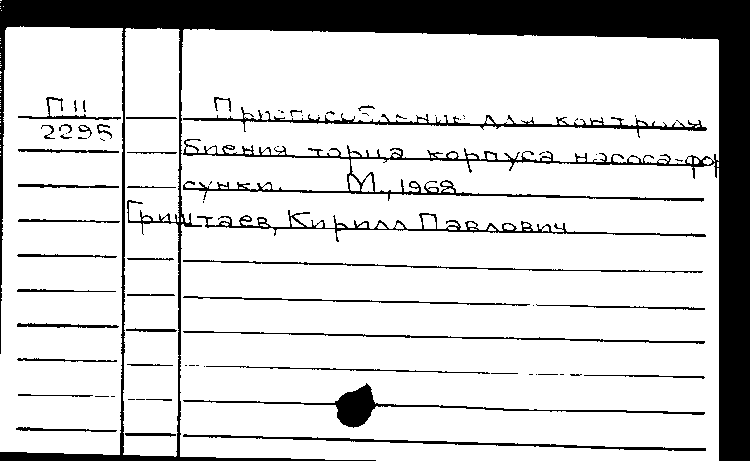 П11
2295
Приспособление для контроля
биения торца корпуса насоса-фор
сунки. М., 1968
Гриштаев, Кирилл Павлович